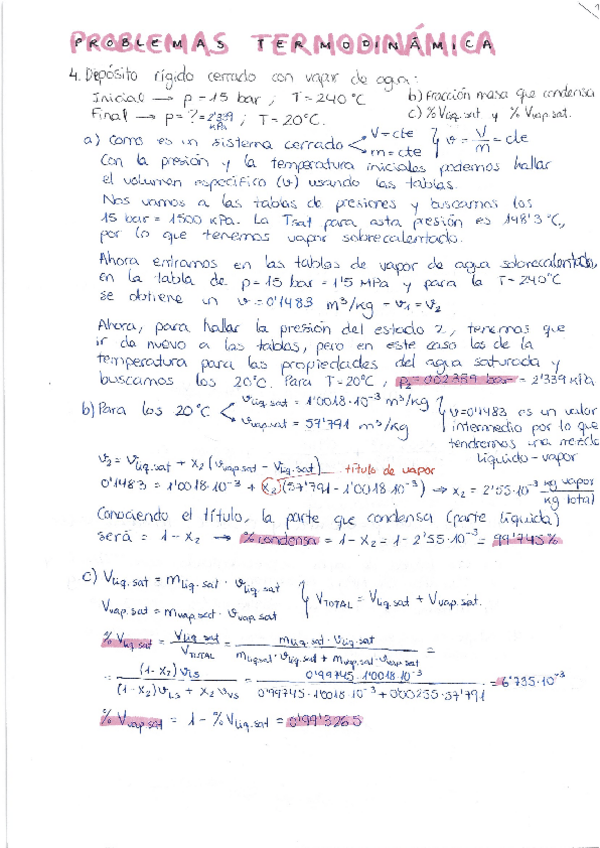 PROBLEMAS TERMODINÁMICA
4. Depósito rígido cerrado con vapor de agua:
Inicial → p = 15 bar ; T = 240 °C
Final → p = ? = 2'339 kPa ; T = 20°C.
b) Fracción masa que condensa
c) % Vliq.sat y % Vvap.sat.
a) Como es un sistema cerrado < V = cte m = cte } v = V/m = cte
Con la presión y la temperatura iniciales podemos hallar
el volumen específico (v) usando las tablas.
Nos vamos a las tablas de presiones y buscamos los
15 bar = 1500 KPa. La Tsat para esta presión es 148'3 °C,
por lo que tenemos vapor sobrecalentado.
Ahora entramos en las tablas de vapor de agua sobrecalentado,
en la tabla de p = 15 bar = 1'5 MPa y para la T = 240°C
se obtiene un v = 0'1483 m³/kg → v1 = v2
Ahora, para hallar la presión del estado 2, tenemos que
ir de nuevo a las tablas, pero en este caso las de la
temperatura para las propiedades del agua saturada y
buscamos los 20°C. Para T = 20°C, p2 = 0'02339 bar = 2'339 kPa
b) Para los 20°C < vliq.sat = 1'0018·10⁻³ m³/kg vvap.sat = 57'791 m³/kg } v = 0'1483 es un valor
intermedio por lo que
tendremos una mezcla
líquido-vapor
v2 = vliq.sat + x2 (vvap.sat - vliq.sat) título de vapor
0'1483 = 1'0018·10⁻³ + x2 (57'791 - 1'0018·10⁻³) → x2 = 2'55·10⁻³ kg vapor/kg total
Conociendo el título, la parte que condensa (parte líquida)
será = 1 - x2 → % condensa = 1 - x2 = 1 - 2'55·10⁻³ = 99'745%
c) Vliq.sat = mliq.sat · vliq.sat
Vvap.sat = mvap.sat · vvap.sat } VTOTAL = Vliq.sat + Vvap.sat.
% Vliq.sat = Vliq.sat / VTOTAL = mliq.sat · vliq.sat / mliq.sat · vliq.sat + mvap.sat · vvap.sat =
= (1-x2) vLS / (1-x2) vLS + x2 vVS = 0'99745 · 1'0018·10⁻³ / 0'99745 · 1'0018·10⁻³ + 0'00255 · 57'791 = 6'735·10⁻³
% Vvap.sat = 1 - % Vliq.sat = 0'993265